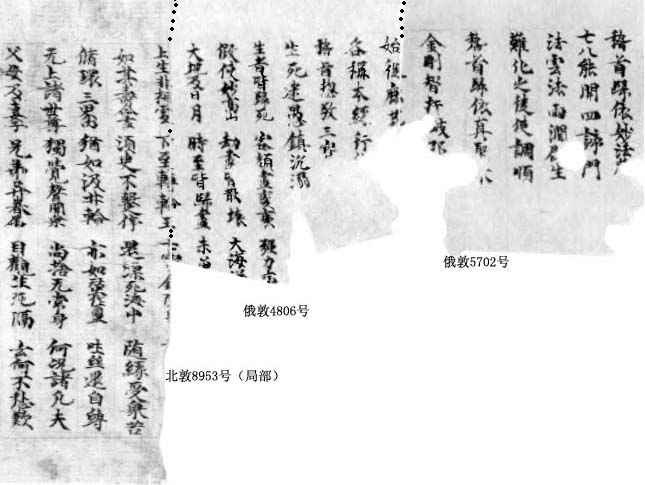 稽首歸依妙法
七八能開四諦門
法雲法雨潤群生
難化之徒使調順
稽首歸依真聖
金剛智杵破邪
始從鹿苑
各稱本緣行
稽首總敬三寶
生死迷愚鎮沉溺
生者皆歸死 容顏盡變衰 強力
假使妙高山 劫盡皆散壞 大海深
大地及日月 時至皆歸盡 未曾
上生非想處 下至轉輪王 七寶
如其壽命盡 須臾不暫停 還漂死海中 隨緣受衆苦
循環三界 猶如汲井輪 亦如蠶作繭 吐絲還自纏
无上諸世尊 獨覺聲聞衆 尚捨无常身 何況諸凡夫
父母及妻子 兄弟并眷屬 目觀生死隔 云何不愁歎
俄敦5702号
俄敦4806号
北敦8953号（局部）